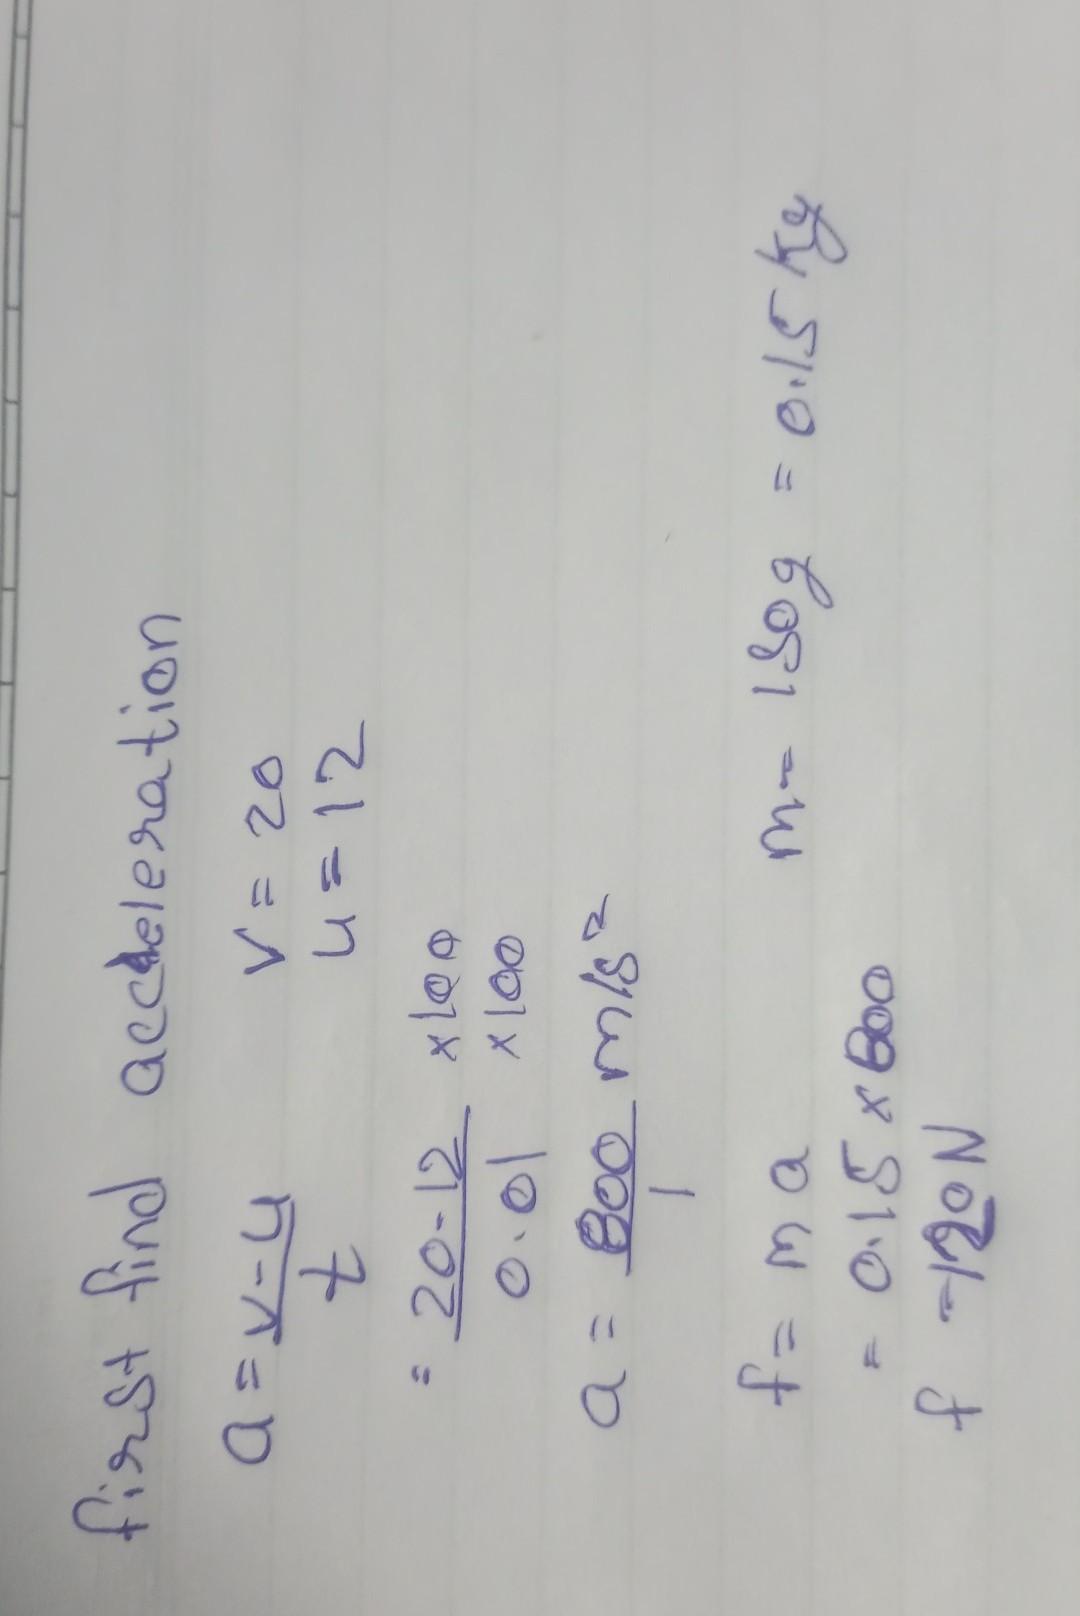 first find acceleration
a = v-u / t   v = 20
u = 12
= 20-12 / 0.01 ×100 / ×100
a = 800 / 1 m/s²
f = m a   m = 150g = 0.15 kg
= 0.15 × 800
f = 120N